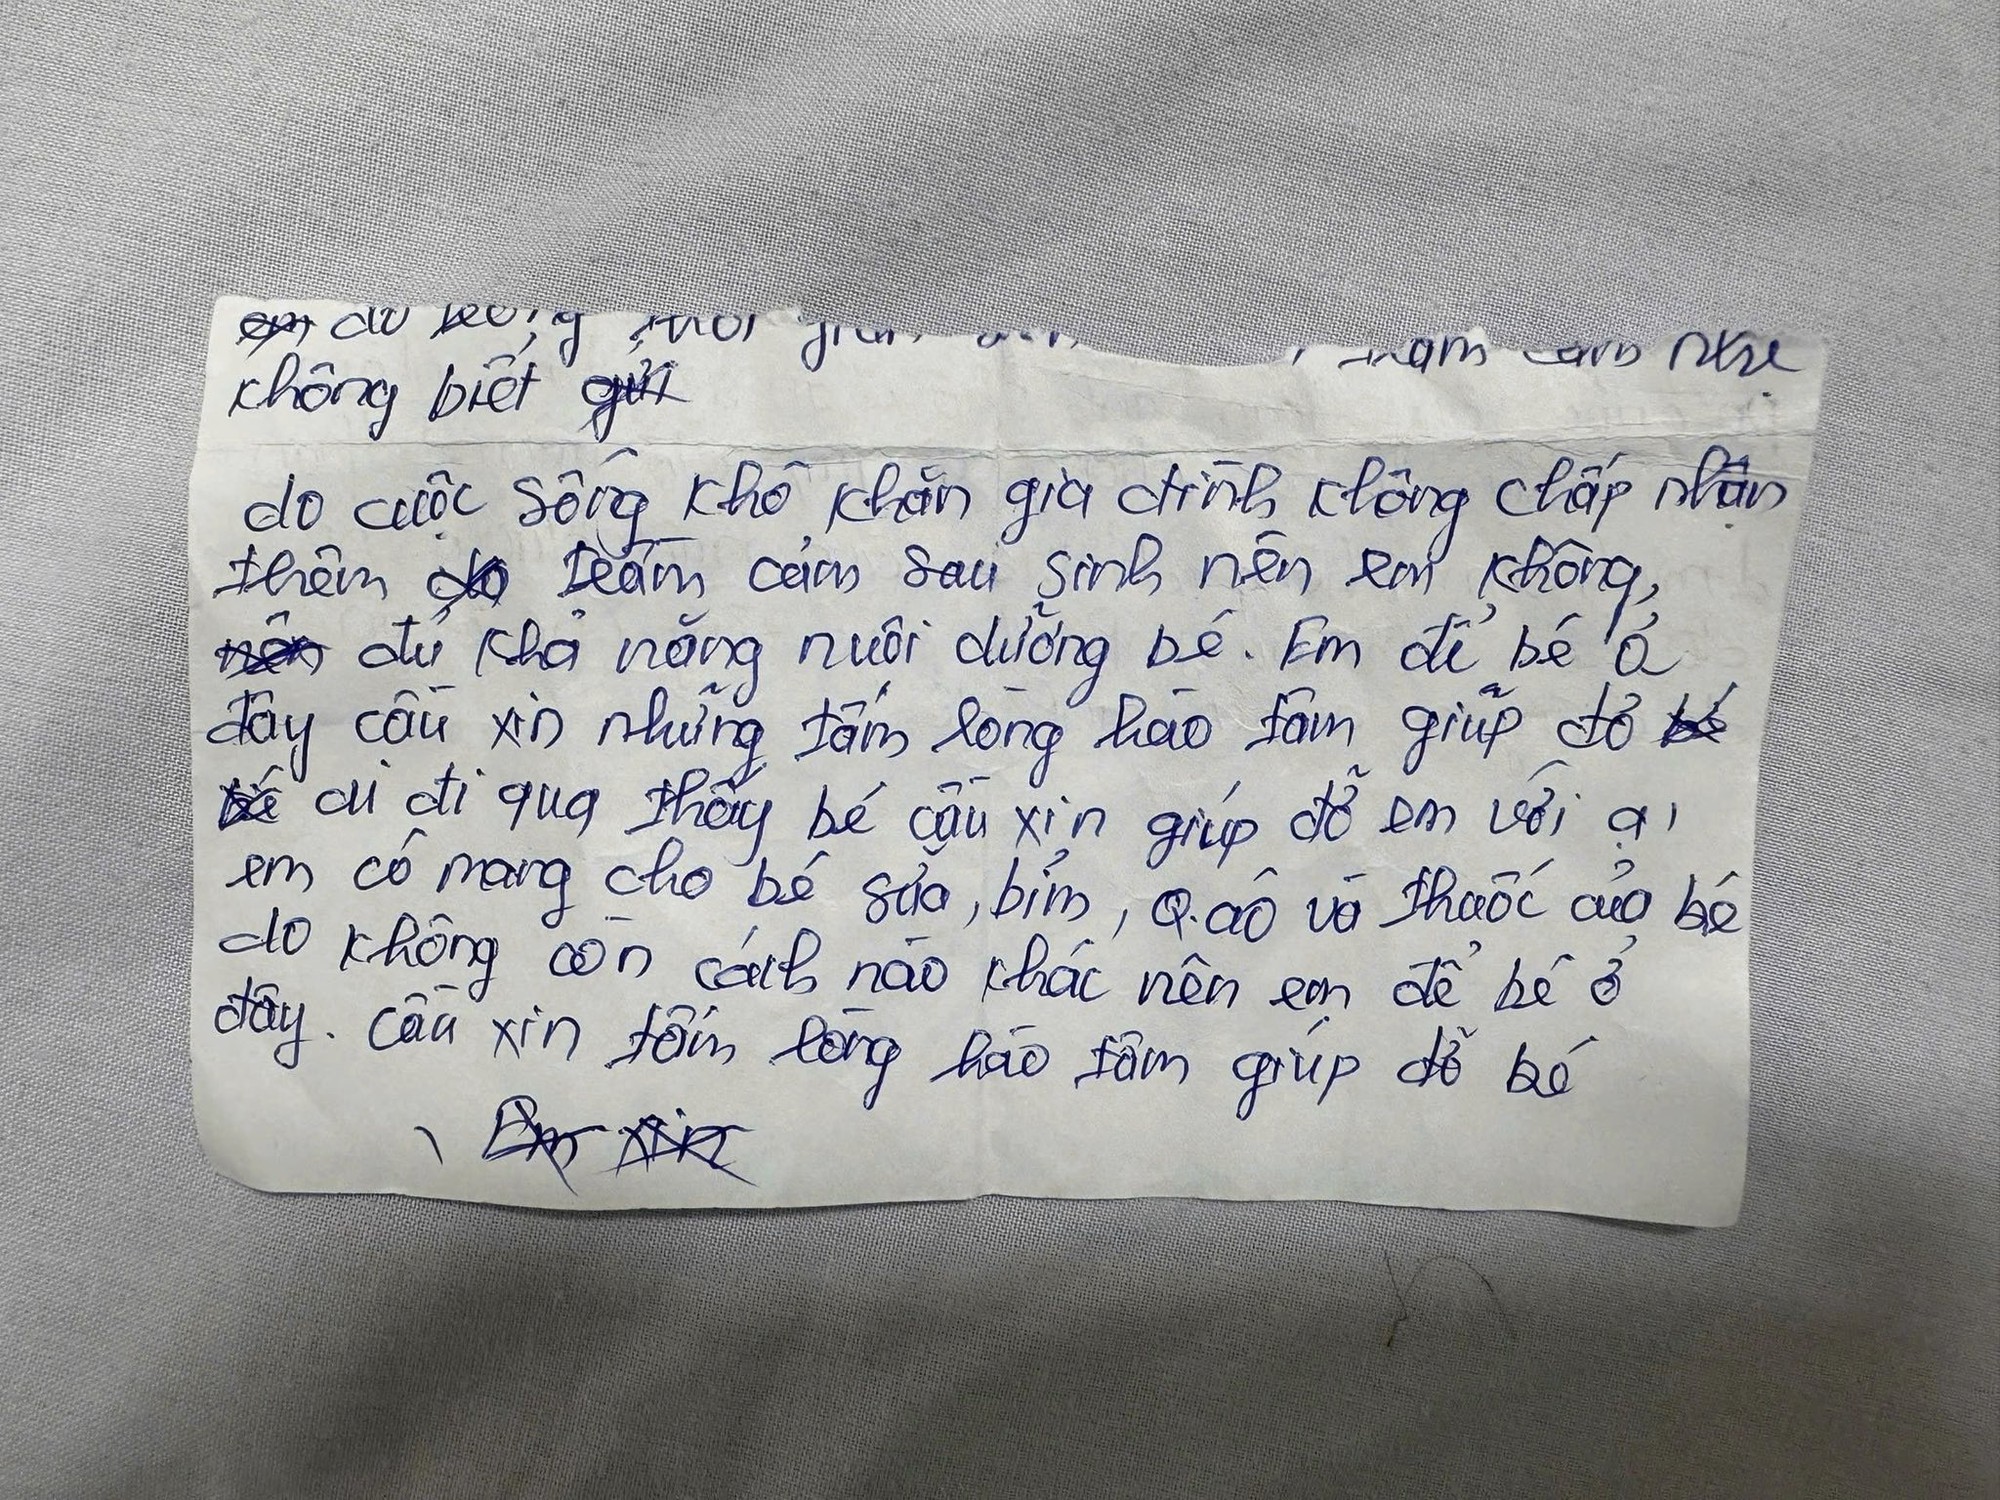 em do trong thời gian trầm cảm nhẹ
không biết gửi
do cuộc sống khó khăn gia đình không chấp nhận
thêm do trầm cảm sau sinh nên em không,
nên đủ khả năng nuôi dưỡng bé. Em để bé ở
đây cầu xin những tấm lòng hảo tâm giúp đỡ bé
bé ai đi qua thấy bé cầu xin giúp đỡ em với ạ,
em có mang cho bé sữa, bỉm, Q.áo và thuốc của bé
do không còn cách nào khác nên em để bé ở
đây. cầu xin tấm lòng hảo tâm giúp đỡ bé
Em xin